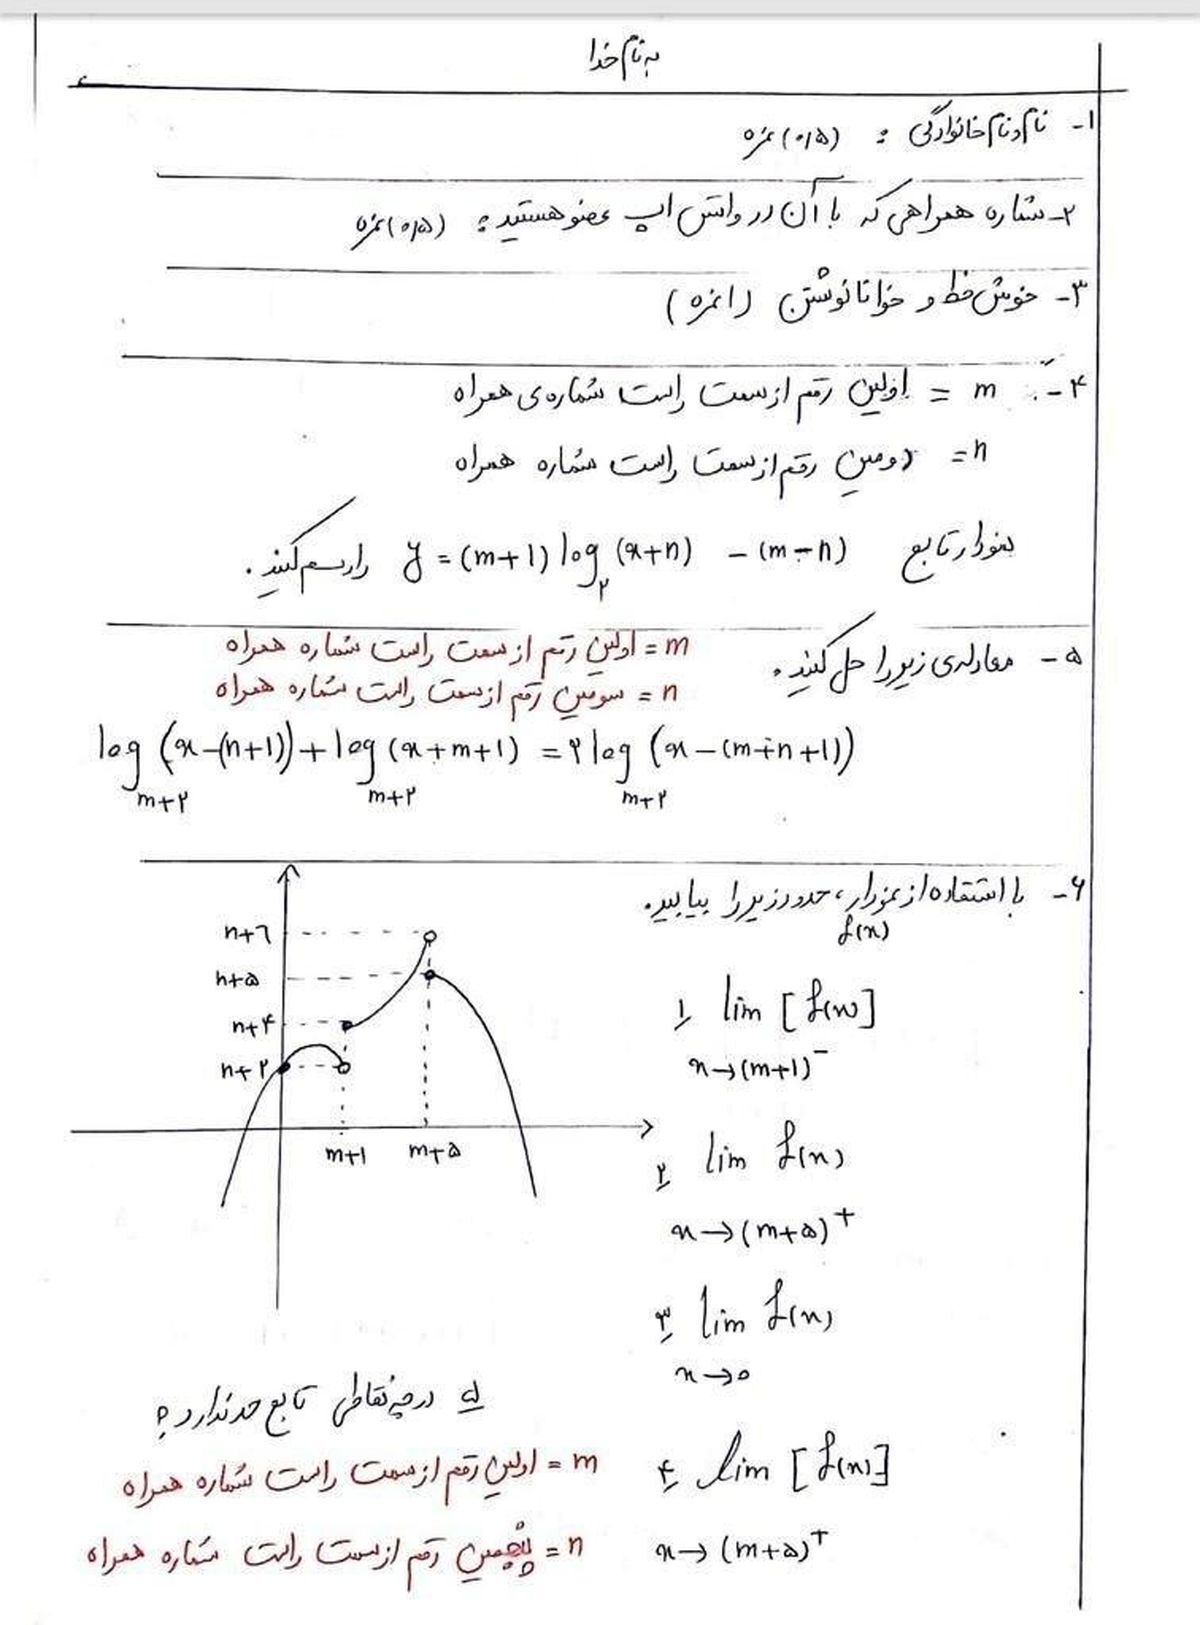 به نام خدا
۱- نام و نام خانوادگی : (۰/۵) نمره
۲- شماره همراهی که با آن در واتس اپ عضو هستید : (۰/۵) نمره
۳- خوش خط و خوانا نوشتن (۱ نمره)
۴- m = اولین رقم از سمت راست شماره‌ی همراه
n = دومین رقم از سمت راست شماره همراه
نمودار تابع y = (m+1) log₂ (x+n) - (m-n) را رسم کنید.
۵- معادله‌ی زیر را حل کنید.
m = اولین رقم از سمت راست شماره همراه
n = سومین رقم از سمت راست شماره همراه
log (x-(n+1)) + log (x+m+1) = ۲ log (x-(m+n+1))
m+۲ m+۲ m+۲
۶- با استفاده از نمودار f(x)، حدود زیر را بیابید.
n+۶
n+۵
n+۴
n+۲
m+1 m+۵
۱ lim [f(x)]
x→(m+1)⁻
۲ lim f(x)
x→(m+۵)⁺
۳ lim f(x)
x→۰
۴ lim [f(x)]
x→(m+۵)⁺
۵ در چه نقاطی تابع حد ندارد؟
m = اولین رقم از سمت راست شماره همراه
n = پنجمین رقم از سمت راست شماره همراه